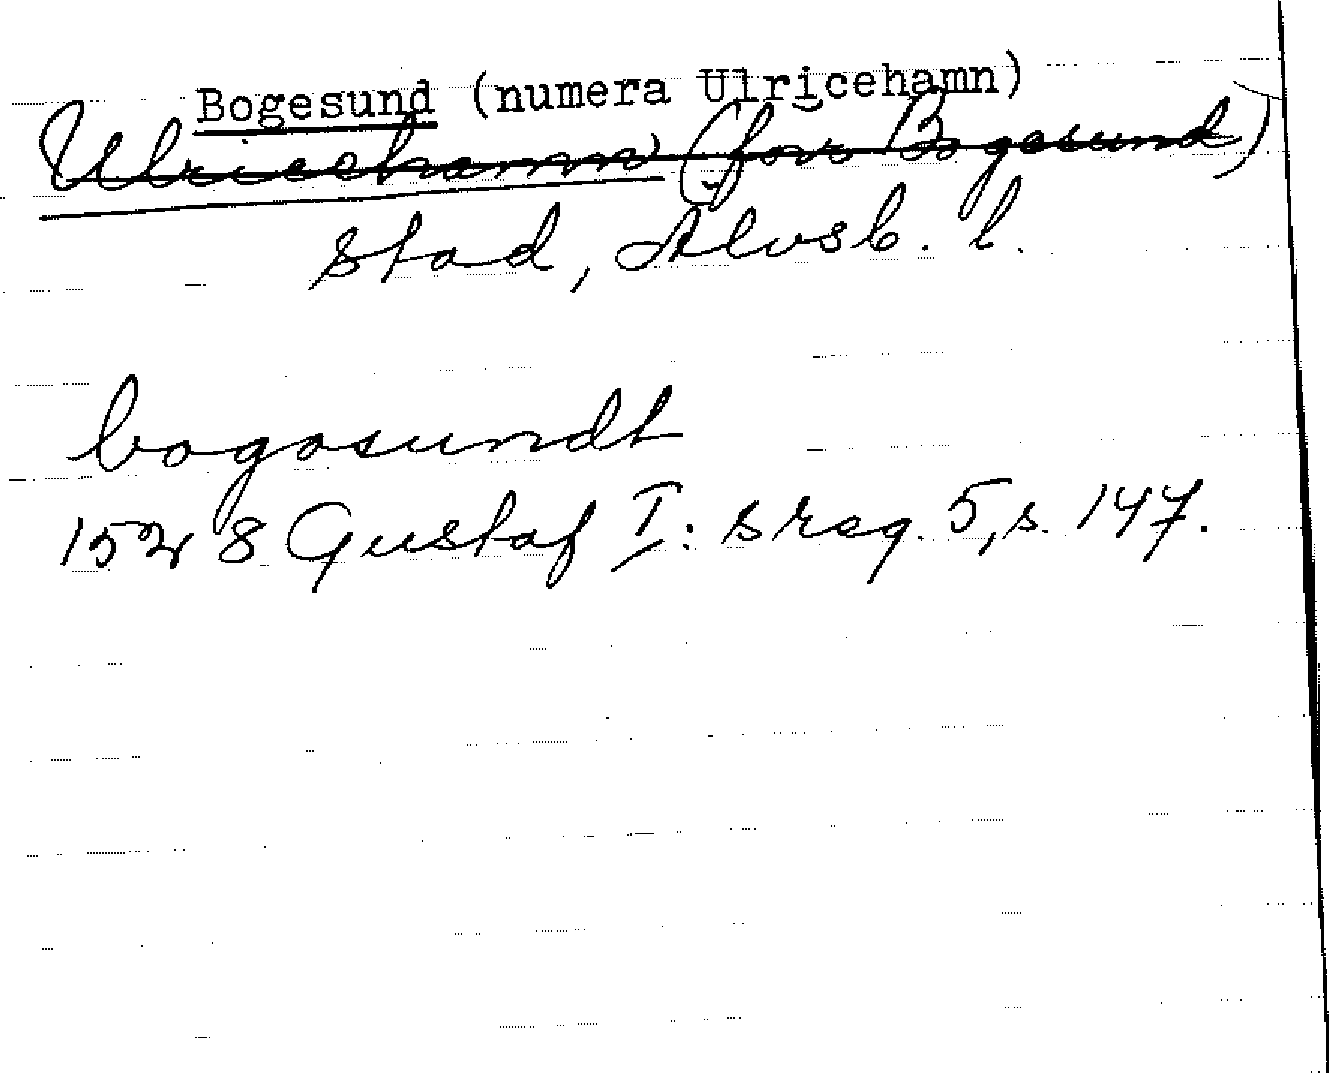 Bogesund (numera Ulricehamn)
Ulricehamn (förr Bogesund)
stad, Älvsb. l.
bogasundt
1528 Gustaf I: s reg. 5, s. 147.